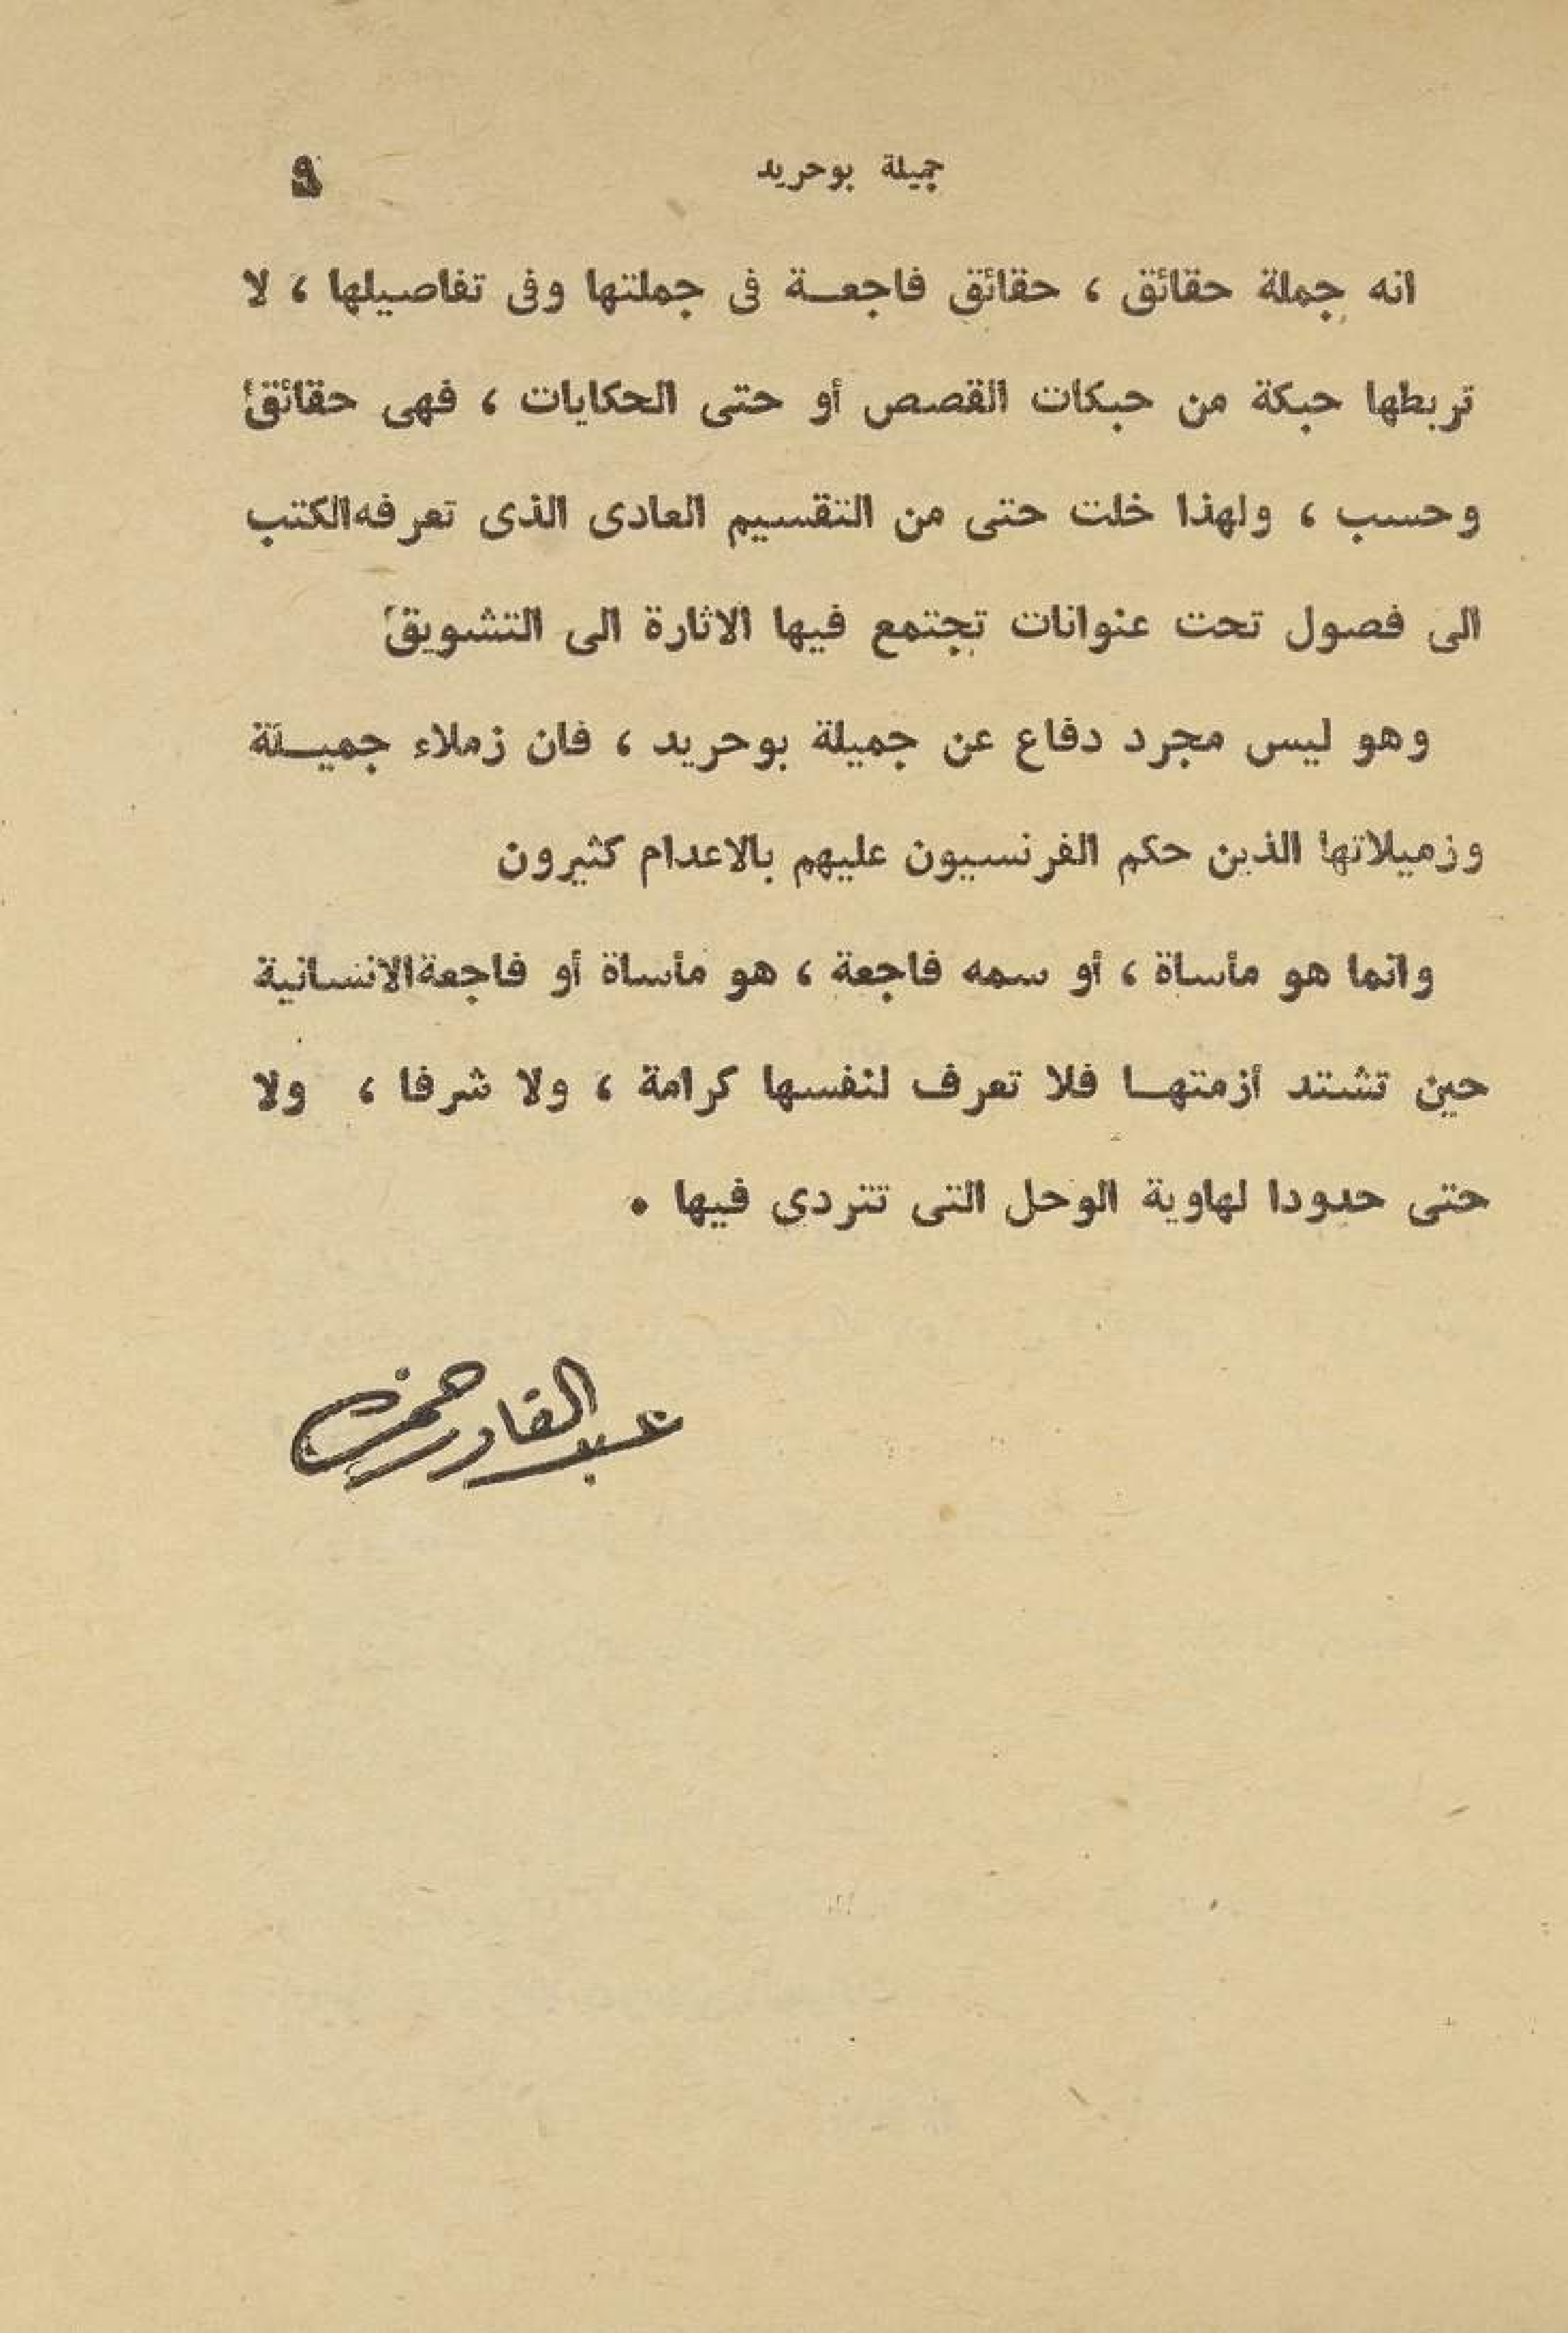 جميلة بوحريد ٩
انه جملة حقائق ، حقائق فاجعــة فى جملتها وفى تفاصيلها ، لا
تربطها حبكة من حبكات القصص أو حتى الحكايات ، فهى حقائق
وحسب ، ولهذا خلت حتى من التقسيم العادى الذى تعرفه الكتب
الى فصول تحت عنوانات تجتمع فيها الاثارة الى التشويق
وهو ليس مجرد دفاع عن جميلة بوحريد ، فان زملاء جميــلة
وزميلاتها الذين حكم الفرنسيون عليهم بالاعدام كثيرون
وانما هو مأساة ، أو سمه فاجعة ، هو مأساة أو فاجعة الانسانية
حين تشتد أزمتهــا فلا تعرف لنفسها كرامة ، ولا شرفا ، ولا
حتى حدودا لهاوية الوحل التى تتردى فيها .
عبد القادر حمزه